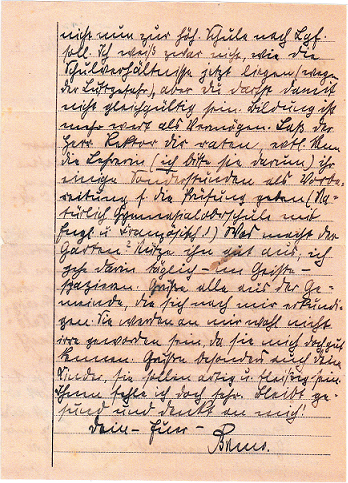 nicht nun zur höh. Schule nach Lgf.
soll. Ich weiß zwar nicht, wie die
Schulverhältnisse jetzt liegen (wegen
der Luftgefahr), aber Du darfst damit
nicht gleichgültig sein. Bildung ist
mehr wert als Vermögen. Laß Dir
Herr Rektor Dir raten, evtl. kann
die Lehrerin (ich bitte sie darum) ihr
einige Sonderstunden als Vorbe-
reitung f. die Prüfung geben (Na-
türlich Gymnasialoberschule mit
Engl. u. Französisch!) Was macht der
Garten? Nütze ihn gut aus, ich
geh darin täglich – im Geiste –
spazieren. Grüße alle aus der Ge-
meinde, die sich nach mir erkundi-
gen. Sie werden an mir wohl nicht
irre geworden sein, da sie mich doch gut
kennen. Grüße besonders auch die
Kinder, sie sollen artig u. fleißig sein.
Ihnen fehle ich doch sehr. Bleibt ge-
sund und denkt an mich!
Dein – Euer –